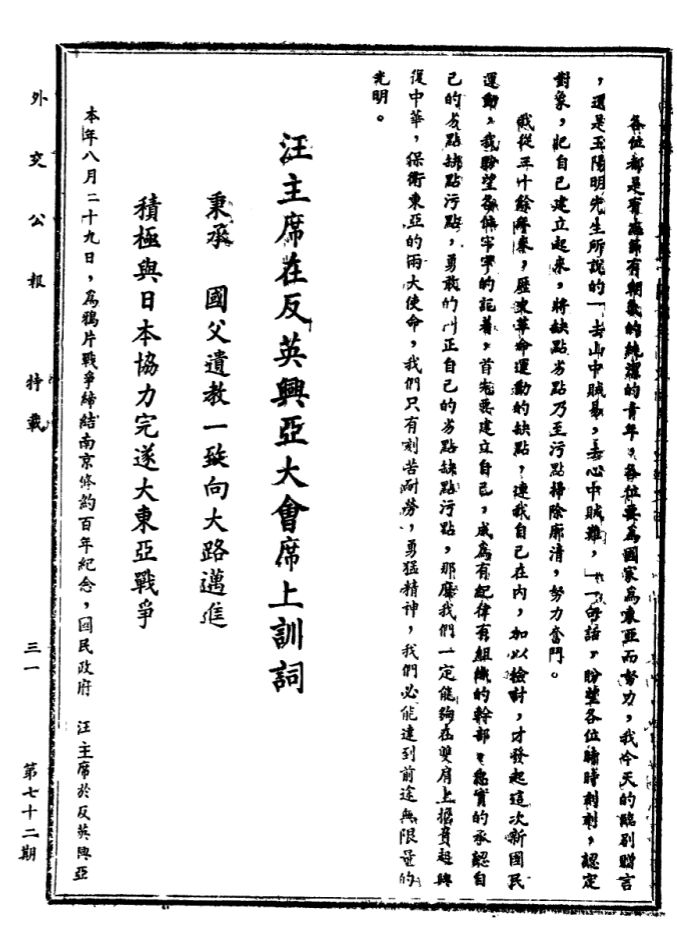 各位都是有志節有朝氣的純潔的青年，各位要為國家為東亞而努力，我今天的臨別贈言
，還是王陽明先生所說的「去山中賊易，去心中賊難，」一句話，盼望各位時時刻刻，認定
對象，把自己建立起來，將缺點劣點乃至污點掃除廓清，努力奮鬥。
我從三十餘年來，歷次革命運動的缺點，連我自己在內，加以檢討，才發起這次新國民
運動，我盼望各位牢牢的記着，首先要建立自己，成為有紀律有組織的幹部，忠實的承認自
己的劣點缺點污點，勇敢的糾正自己的劣點缺點污點，那麼我們一定能夠在雙肩上擔負起興
復中華，保衛東亞的兩大使命，我們只有刻苦耐勞，勇猛精神，我們必能達到前途無限量的
光明。
汪主席在反英興亞大會席上訓詞
秉承　國父遺教一致向大路邁進
積極與日本協力完遂大東亞戰爭
本年八月二十九日，為鴉片戰爭締結南京條約百年紀念，國民政府　汪主席於反英興亞
外交公報　特載　三一　第七十二期